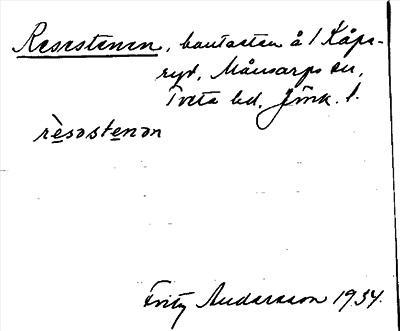 Resestenen, bautasten å 1 Kåpe-
ryd, Månsarps sn,
Tveta hd, Jönk. l.
rèsəstenən
Fritz Andersson 1934.